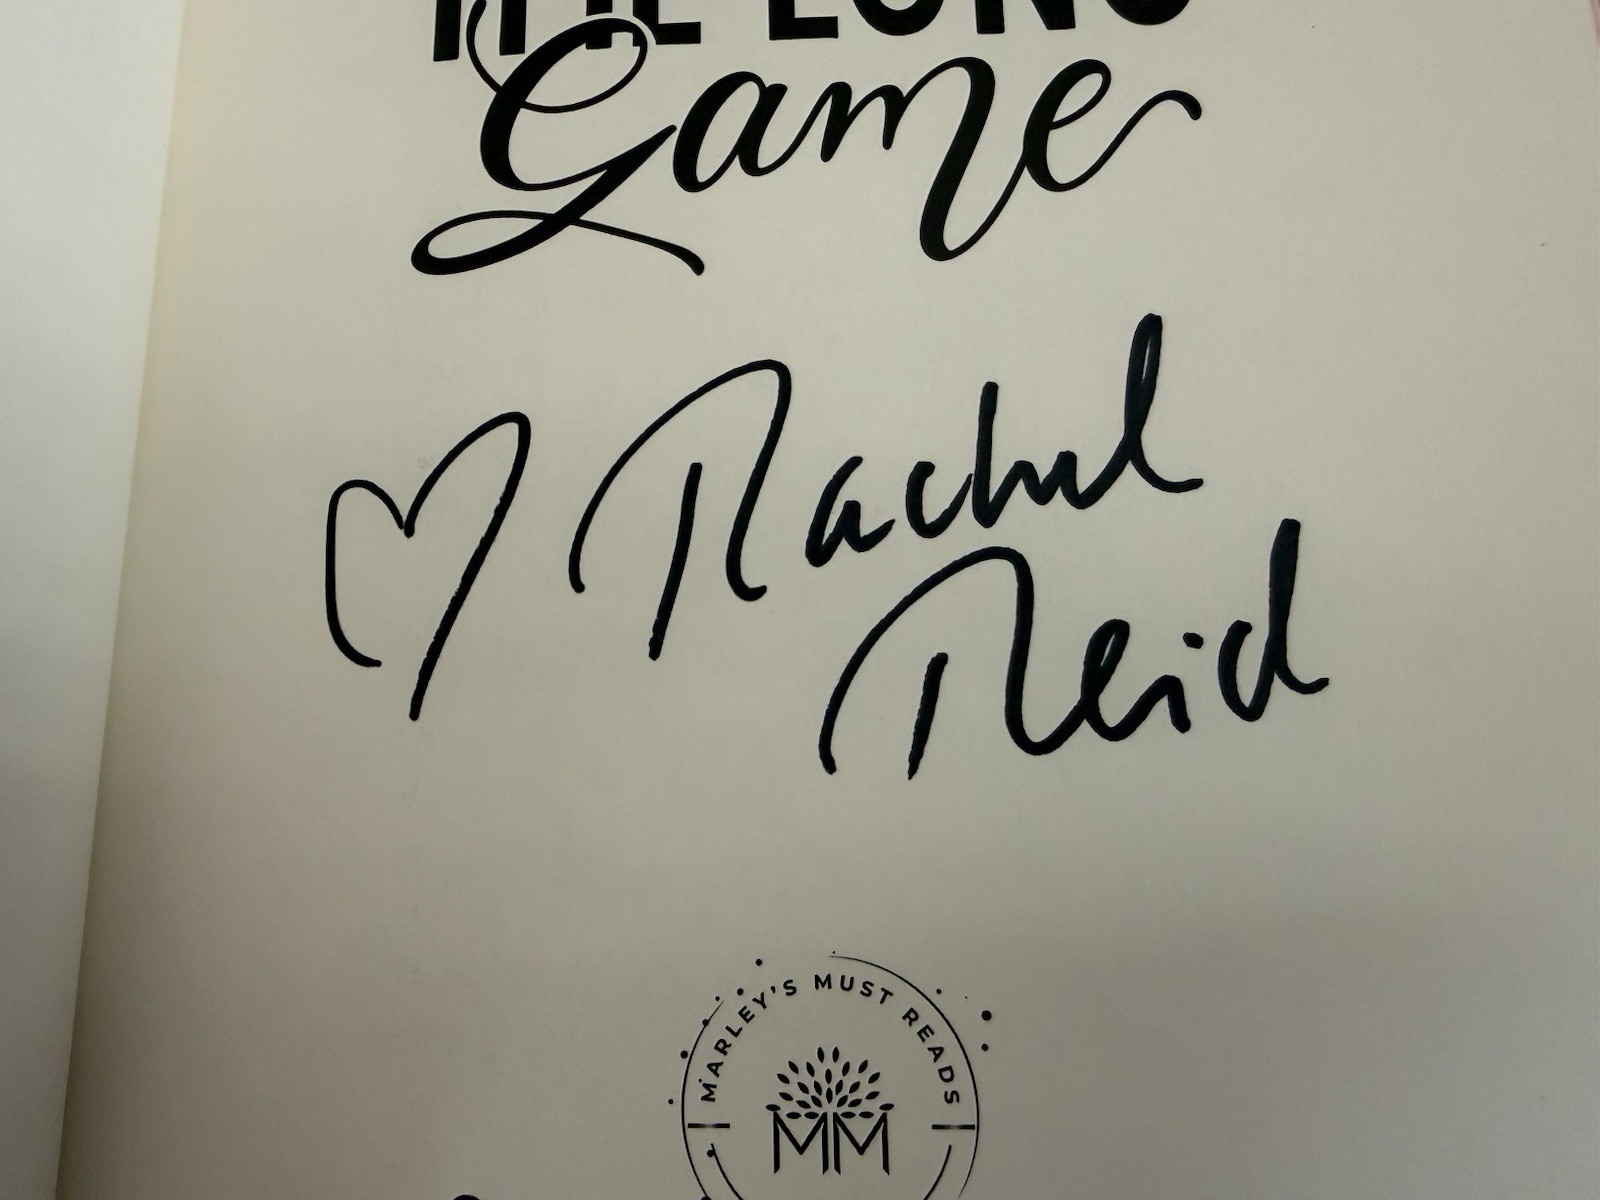 THE LONG
Game
♡ Rachel
Reid
MARLEY'S MUST READS
MM